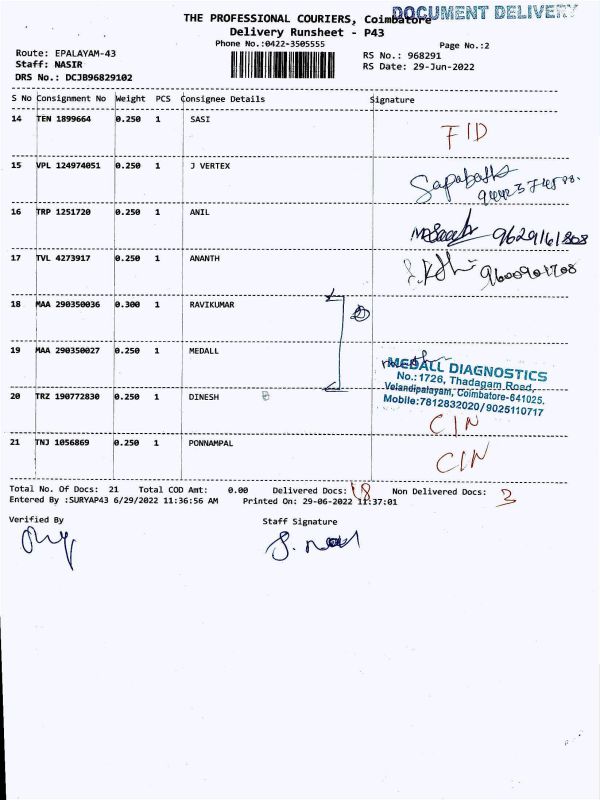 THE PROFESSIONAL COURIERS, Coimbatore
DOCUMENT DELIVERY
Delivery Runsheet - P43
Phone No.:0422-3505555
Page No.:2
Route: EPALAYAM-43
RS No.: 968291
Staff: NASIR
RS Date: 29-Jun-2022
DRS No.: DCJB96829102
S No Consignment No Weight PCS Consignee Details Signature
14 TEN 1899664 0.250 1 SASI
FID
15 VPL 124974051 0.250 1 J VERTEX
16 TRP 1251720 0.250 1 ANIL
9629161808
17 TVL 4273917 0.250 1 ANANTH
9600901708
18 MAA 290350036 0.300 1 RAVIKUMAR
19 MAA 290350027 0.250 1 MEDALL
MEDALL DIAGNOSTICS
No.:1726, Thadagam Road,
Velandipalayam, Coimbatore-641025.
Mobile:7812832020/9025110717
20 TRZ 190772830 0.250 1 DINESH
CIN
21 TNJ 1056869 0.250 1 PONNAMPAL
CIN
Total No. Of Docs: 21 Total COD Amt: 0.00 Delivered Docs: 18 Non Delivered Docs: 3
Entered By :SURYAP43 6/29/2022 11:36:56 AM Printed On: 29-06-2022 11:37:01
Verified By Staff Signature